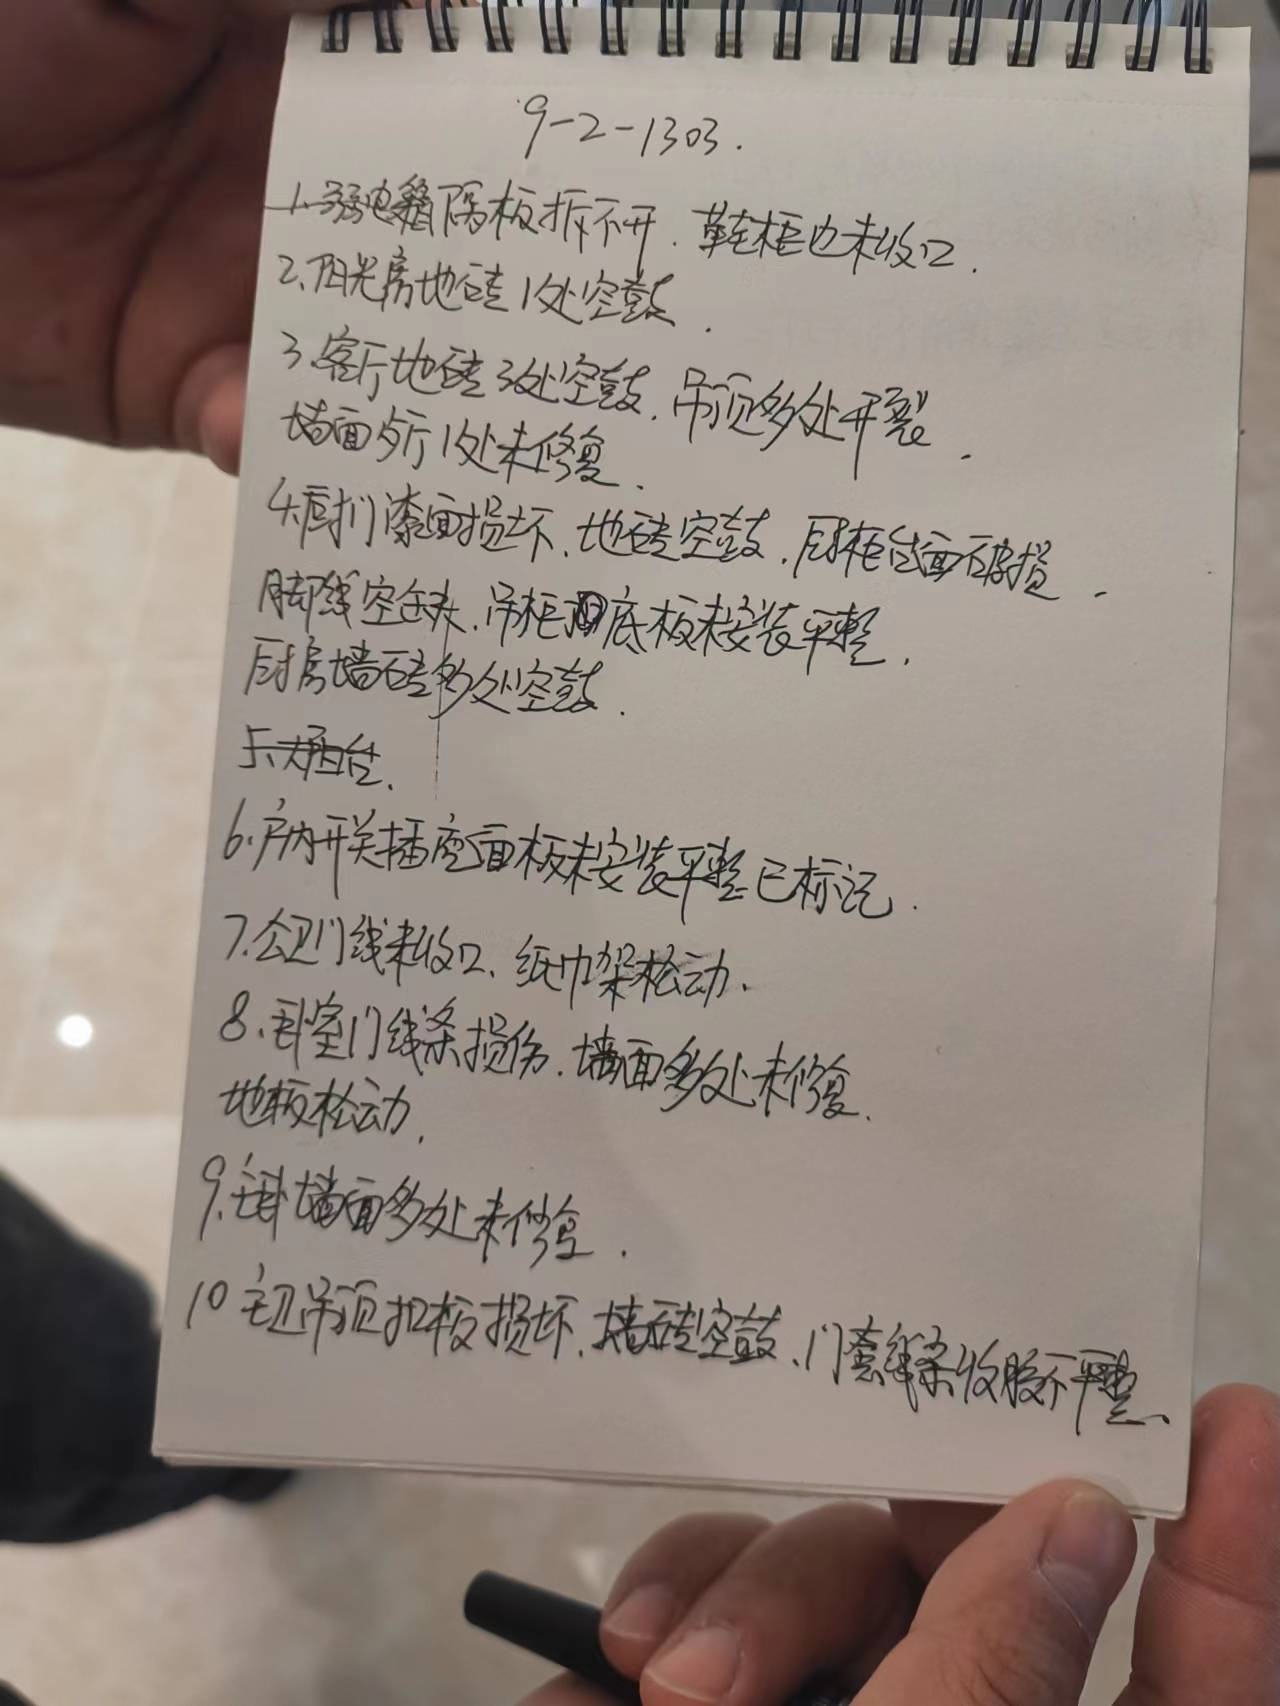 9-2-1303.
1.弱电箱隔板拆不开.鞋柜也未收口.
2.阳光房地砖1处空鼓.
3.客厅地砖3处空鼓.吊顶多处开裂.
墙面歺厅1处未修复.
4.厨门漆面损坏.地砖空鼓.厨柜台面破损.
脚线空缺.吊柜底板未安装平整.
厨房墙砖多处空鼓.
5.大阳台.
6.户内开关插座面板未安装平整已标记.
7.公卫门线未收口、纸巾架松动.
8.卧室门线条损伤.墙面多处未修复.
地板松动.
9.主卧墙面多处未修复.
10 主卫吊顶扣板损坏.墙砖空鼓、门套线条收胶不平整、